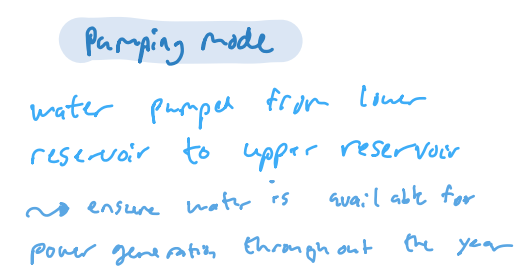 Pumping mode
water pumped from lower
reservoir to upper reservoir
↝ ensure water is available for
power generation throughout the year